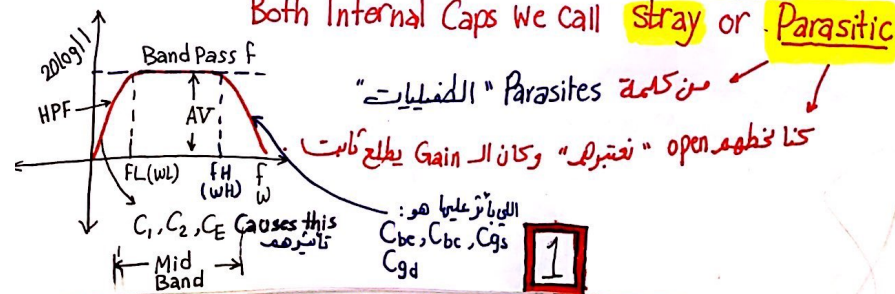 Both Internal Caps We call stray or Parasitic
من كلمة Parasites "الطفيليات"
كنا نحطهم open "نعتبرهم" وكان الـ Gain يطلع ثابت.
20log||
Band Pass f
HPF
AV
FL(WL)
fH
(WH)
f
W
C1, C2, CE Causes this
تأثيرهم
Mid
Band
اللي بأثر عليها هو:
Cbe, Cbc, Cgs
Cgd
1